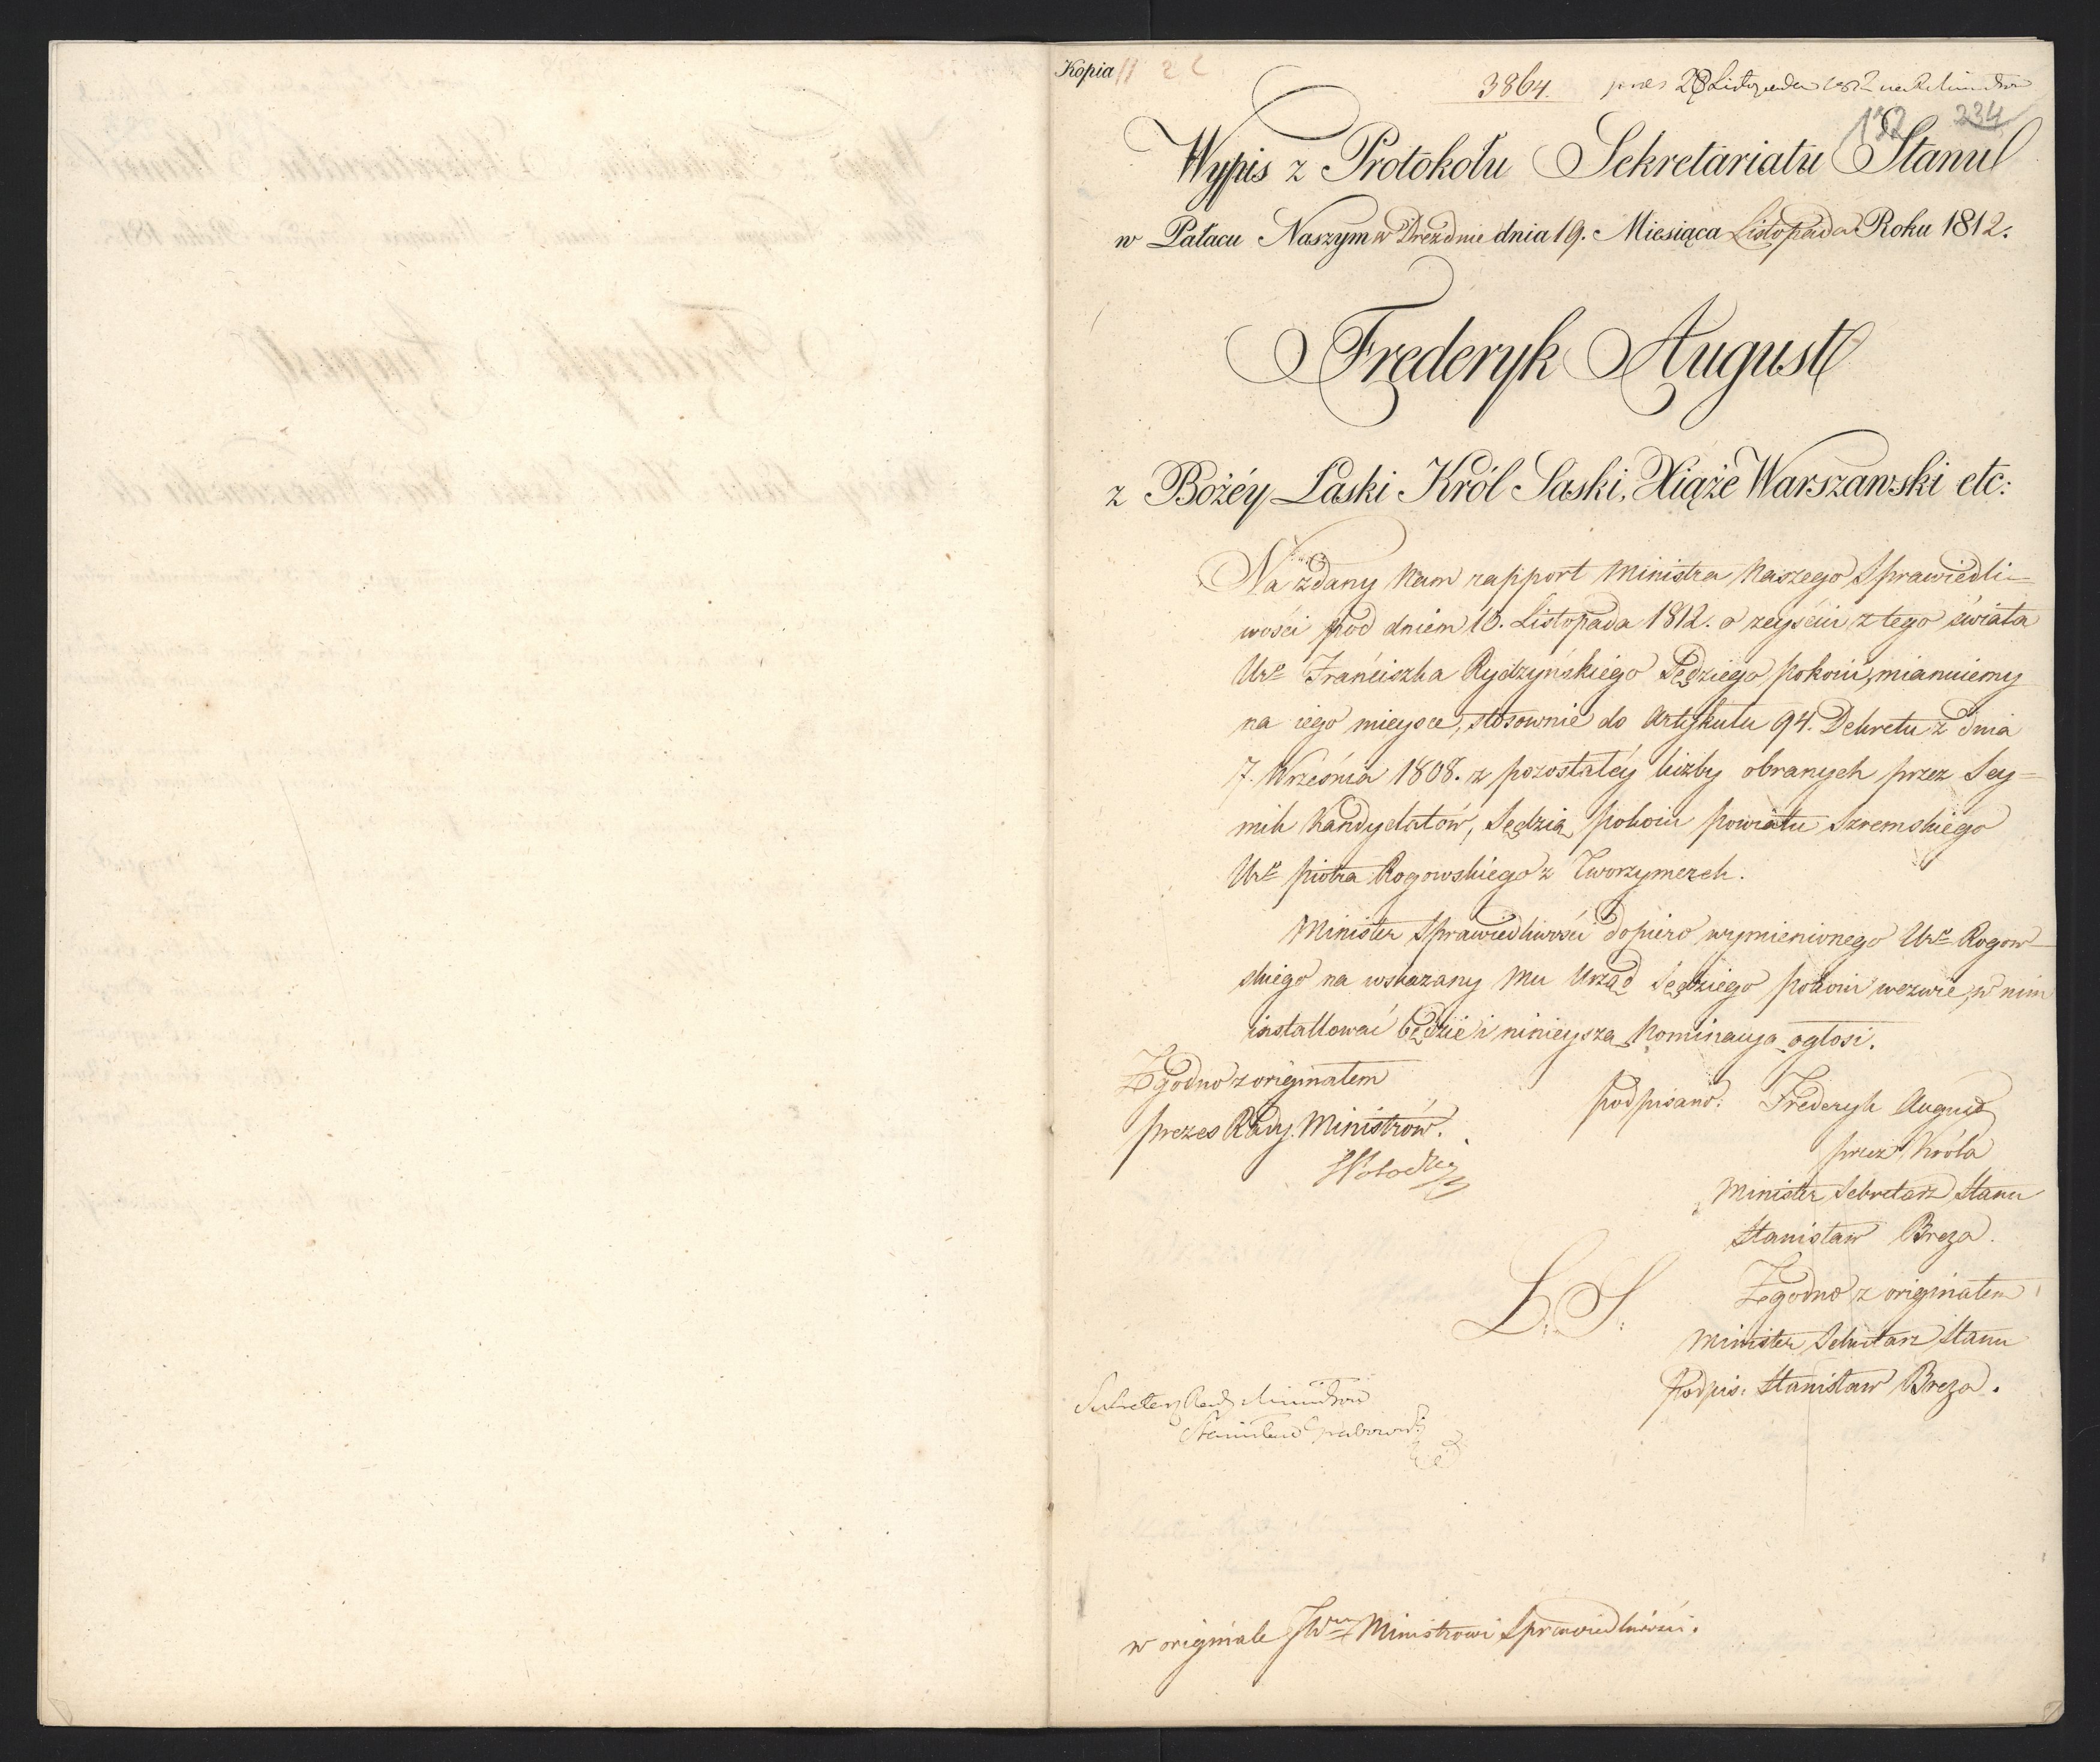 Kopia
3864. pres 28 Listopada 1812 na R. Ministrów
132 234
Wypis z Protokołu Sekretariatu Stanu
w Pałacu Naszym w Dreźdnie dnia 19. Miesiąca Listopada Roku 1812.
Frederyk August
z Bożéy Łaski Król Saski, Xiąże Warszawski etc:
Na zdany Nam rapport Ministra Naszego Sprawiedli=
wości pod dniem 10. Listopada 1812. o zeyściu z tego świata
Ur° Franciszka Rydzyńskiego Sędziego pokoiu, mianuiemy
na iego mieysce, stosownie do Artykułu 94. Dekretu z dnia
7. Września 1808. z pozostałéy liczby obranych przez Sey=
mik Kandydatów, Sędzią pokoiu powiatu Szremskiego
Ur° Piotra Rogowskiego z Tworzymerek.
Minister Sprawiedliwości dopiero wymienionego Ur° Rogow=
skiego na wskazany mu Urząd Sędziego pokoiu wezwie, w nim
installować będzie i ninieyszą Nominacyą ogłosi.
Zgodno z originałem
Prezes Rady Ministrów.
podpisano: Frederyk August
przez Króla
Minister Sekretarz Stanu
Stanisław Breza.
L. S.
Zgodno z originałem
Minister Sekretarz Stanu
Podpis: Stanisław Breza.
Sekretarz Rady Ministrów
Stanisław Grabowski
w originale JW Ministrowi Sprawiedliwości.